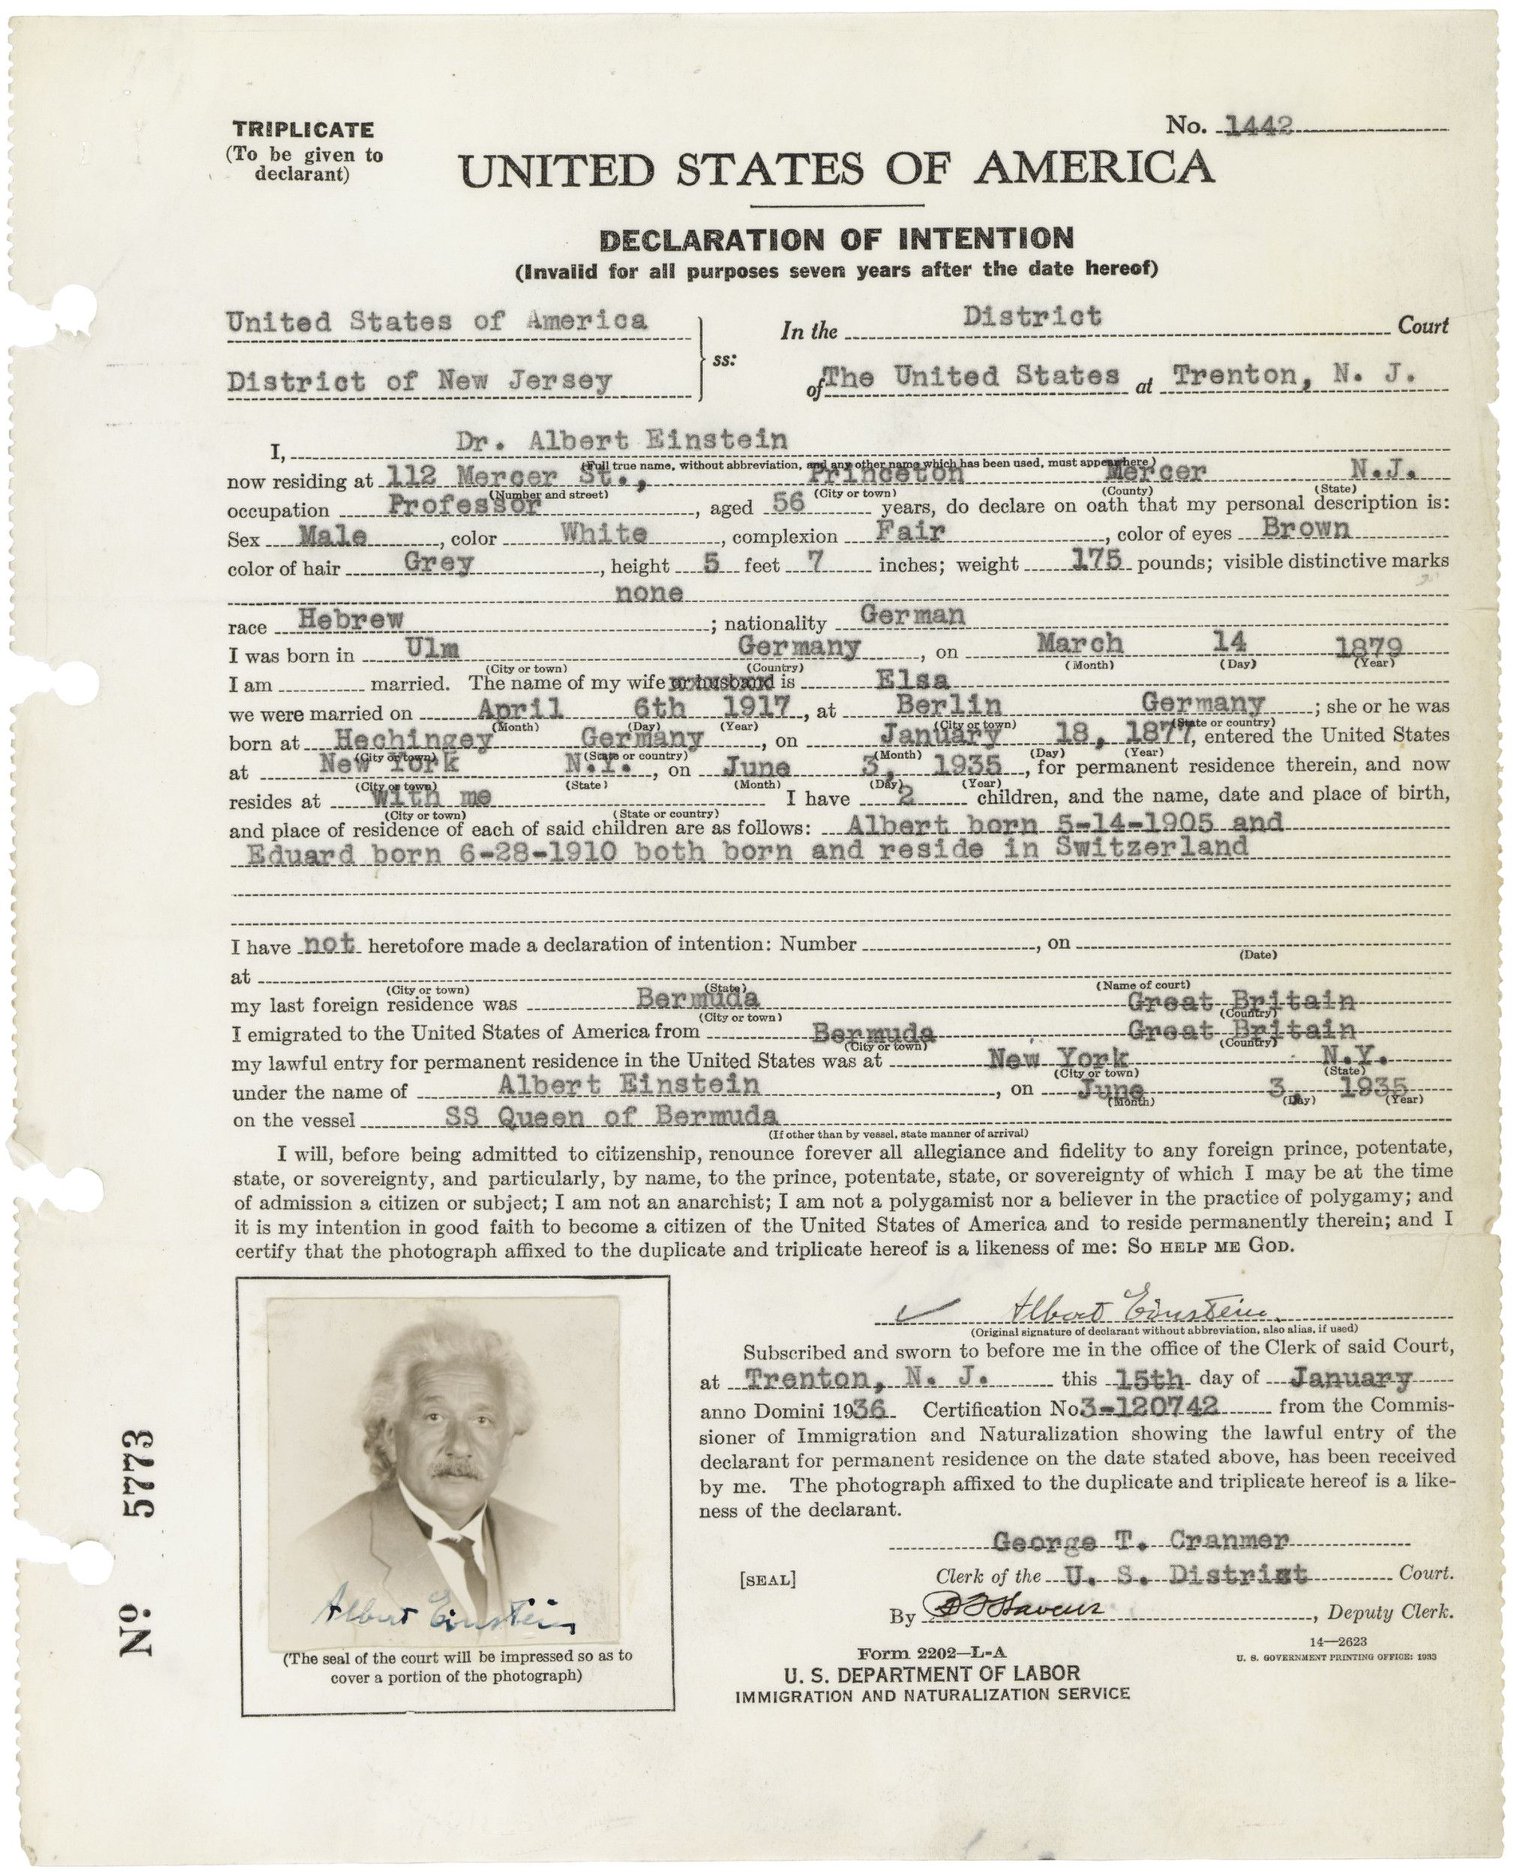 TRIPLICATE
(To be given to
declarant)
No. 1442
UNITED STATES OF AMERICA
DECLARATION OF INTENTION
(Invalid for all purposes seven years after the date hereof)
United States of America
District of New Jersey
ss:
In the District Court
of The United States at Trenton, N. J.
I, Dr. Albert Einstein
(Full true name, without abbreviation, and any other name which has been used, must appear here)
now residing at 112 Mercer St., Princeton Mercer N.J.
(Number and street) (City or town) (County) (State)
occupation Professor, aged 56 years, do declare on oath that my personal description is:
Sex Male, color White, complexion Fair, color of eyes Brown
color of hair Grey, height 5 feet 7 inches; weight 175 pounds; visible distinctive marks
none
race Hebrew; nationality German
I was born in Ulm Germany, on March 14 1879
(City or town) (Country) (Month) (Day) (Year)
I am married. The name of my wife or husband is Elsa
we were married on April 6th 1917, at Berlin Germany; she or he was
(Month) (Day) (Year) (City or town) (State or country)
born at Hechingey Germany, on January 18, 1877, entered the United States
(City or town) (State or country) (Month) (Day) (Year)
at New York N.Y., on June 3, 1935, for permanent residence therein, and now
(City or town) (State) (Month) (Day) (Year)
resides at with me I have 2 children, and the name, date and place of birth,
(City or town) (State or country)
and place of residence of each of said children are as follows: Albert born 5-14-1905 and
Eduard born 6-28-1910 both born and reside in Switzerland
I have not heretofore made a declaration of intention: Number , on
(Date)
at
(City or town) (State) (Name of court)
my last foreign residence was Bermuda Great Britain
(City or town) (Country)
I emigrated to the United States of America from Bermuda Great Britain
(City or town) (Country)
my lawful entry for permanent residence in the United States was at New York N.Y.
(City or town) (State)
under the name of Albert Einstein, on June 3, 1935
(Month) (Day) (Year)
on the vessel SS Queen of Bermuda
(If other than by vessel, state manner of arrival)
I will, before being admitted to citizenship, renounce forever all allegiance and fidelity to any foreign prince, potentate,
state, or sovereignty, and particularly, by name, to the prince, potentate, state, or sovereignty of which I may be at the time
of admission a citizen or subject; I am not an anarchist; I am not a polygamist nor a believer in the practice of polygamy; and
it is my intention in good faith to become a citizen of the United States of America and to reside permanently therein; and I
certify that the photograph affixed to the duplicate and triplicate hereof is a likeness of me: SO HELP ME GOD.
Albert Einstein.
(Original signature of declarant without abbreviation, also alias, if used)
Subscribed and sworn to before me in the office of the Clerk of said Court,
at Trenton, N. J. this 15th day of January
anno Domini 1936 Certification No 3-120742 from the Commis-
sioner of Immigration and Naturalization showing the lawful entry of the
declarant for permanent residence on the date stated above, has been received
by me. The photograph affixed to the duplicate and triplicate hereof is a like-
ness of the declarant.
George T. Cranmer
[SEAL] Clerk of the U. S. District Court.
By , Deputy Clerk.
Form 2202—L-A
U. S. DEPARTMENT OF LABOR
IMMIGRATION AND NATURALIZATION SERVICE
14—2623
U. S. GOVERNMENT PRINTING OFFICE: 1933
Albert Einstein
(The seal of the court will be impressed so as to
cover a portion of the photograph)
No. 5773